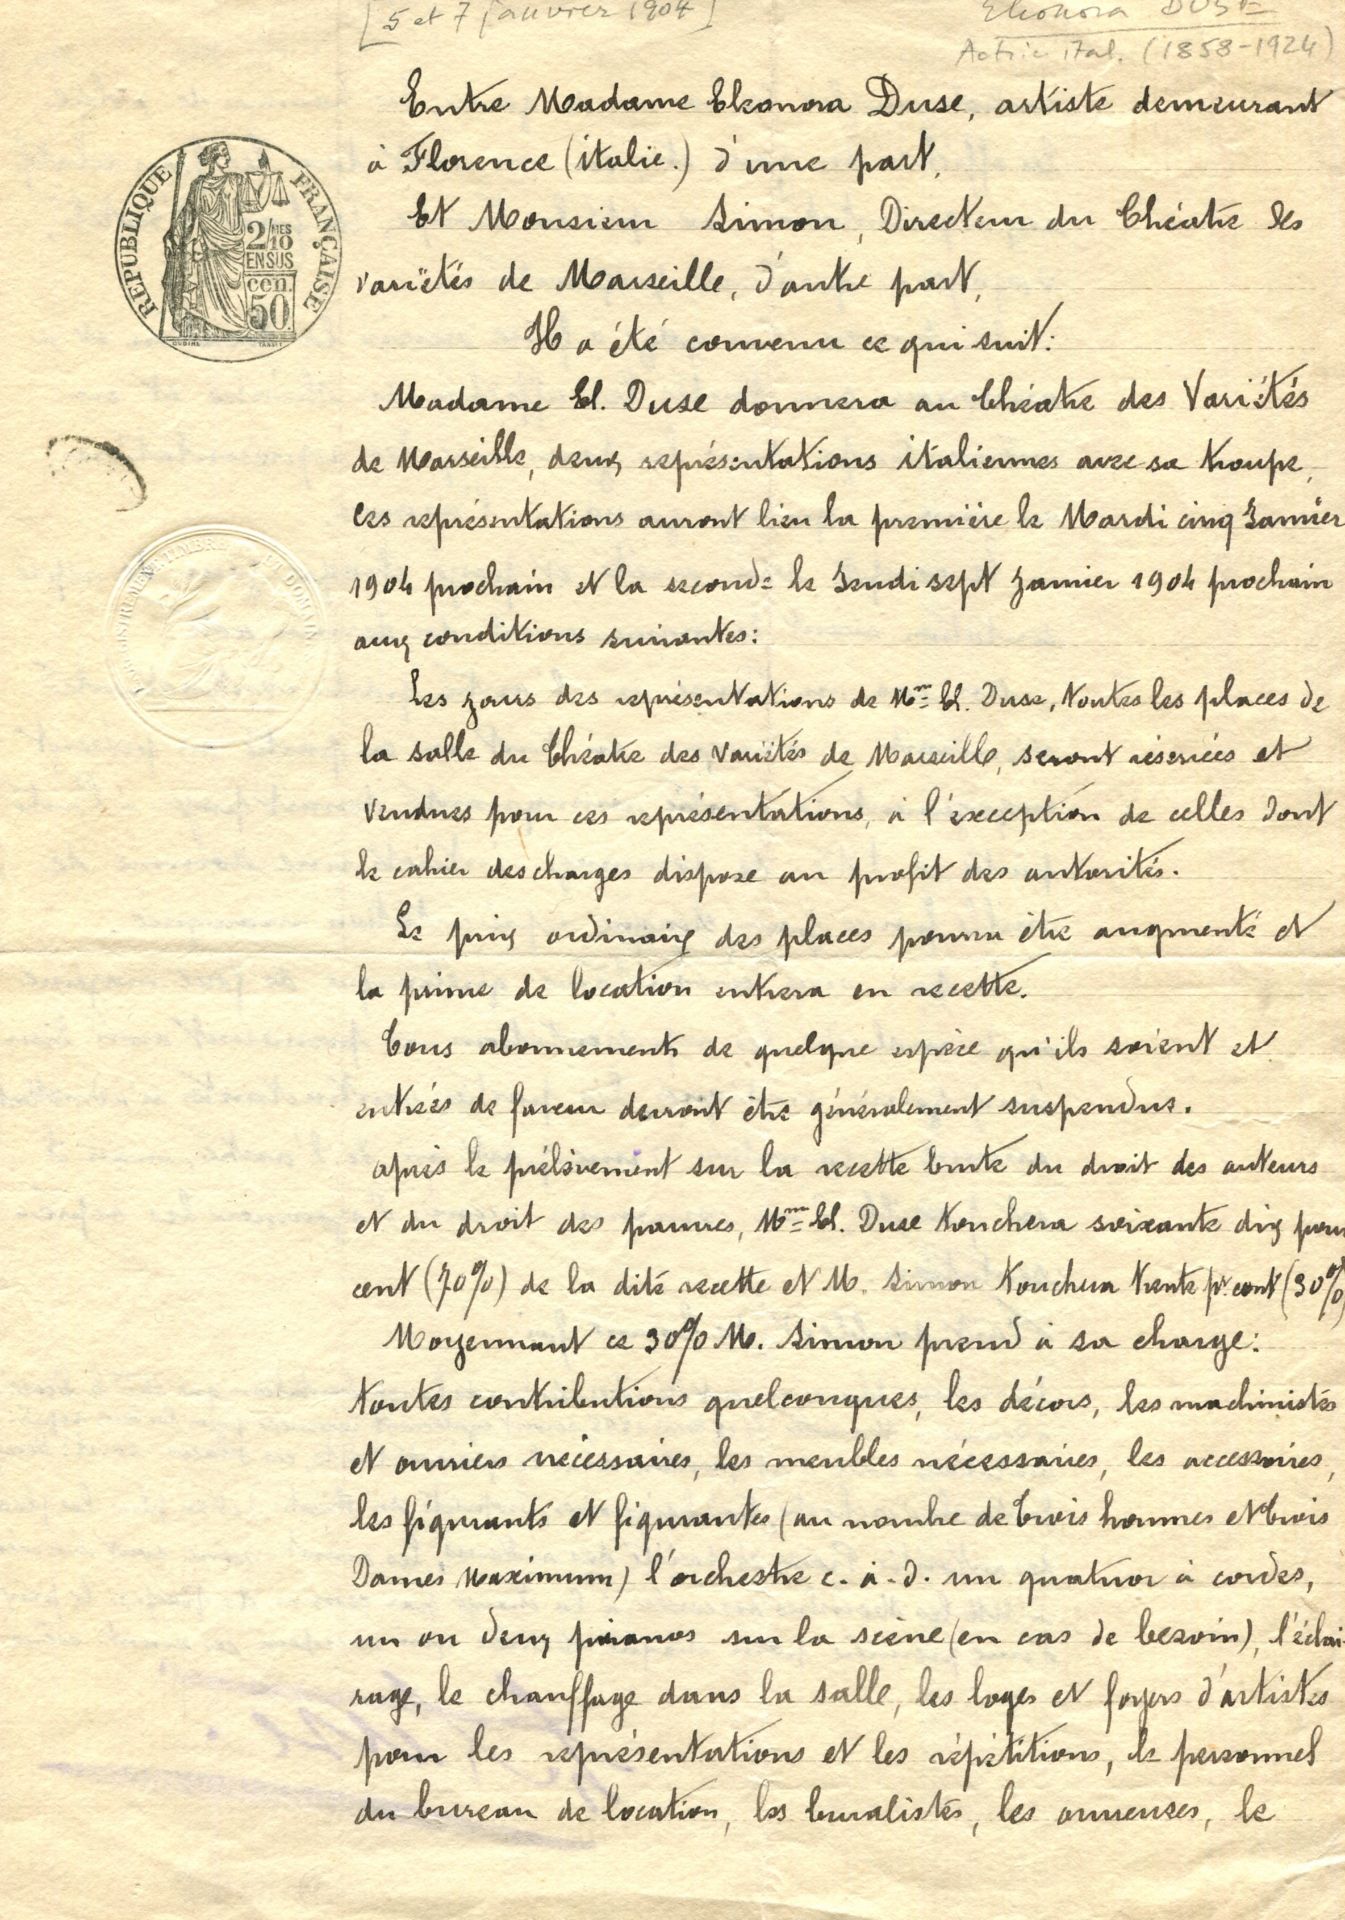 [5 et 7 janvier 1904]
Eleonora DUSE
Actrice ital. (1858-1924)
Entre Madame Eleonora Duse, artiste demeurant
à Florence (italie.) d'une part,
Et Monsieur Simon, Directeur du Théatre des
variétés de Marseille, d'autre part,
Il a été convenu ce qui suit:
REPUBLIQUE FRANÇAISE
2/10MES
EN SUS
cen.
50
Madame El. Duse donnera au Théatre des Variétés
de Marseille, deux représentations italiennes avec sa troupe,
ces représentations auront lieu la première le Mardi cinq Janvier
1904 prochain et la seconde le Jeudi sept Janvier 1904 prochain
aux conditions suivantes:
Les jours des représentations de Mme El. Duse, toutes les places de
la salle du Théatre des Variétés de Marseille, seront réservées et
vendues pour ces représentations, à l'exception de celles dont
le cahier des charges dispose au profit des autorités.
Le prix ordinaire des places pourra être augmenté et
la prime de location entrera en recette.
Tous abonnements de quelque espèce qu'ils soient et
entrées de faveur devront être généralement suspendus.
après le prélèvement sur la recette brute du droit des auteurs
et du droit des pauvres, Mme El. Duse touchera soixante dix pour
cent (70%) de la dite recette et M. Simon touchera trente pr. cent (30%)
Moyennant ce 30% M. Simon prend à sa charge:
toutes contributions quelconques, les décors, les machinistes
et ouvriers nécessaires, les meubles nécessaires, les accessoires,
les figurants et figurantes (au nombre de trois hommes et trois
Dames Maximum) l'orchestre c. à. d. un quatuor à cordes,
un ou deux pianos sur la scène (en cas de besoin), l'éclai-
rage, le chauffage dans la salle, les loges et foyers d'artistes
pour les représentations et les répétitions, le personnel
du bureau de location, les buralistes, les ouvreuses, le